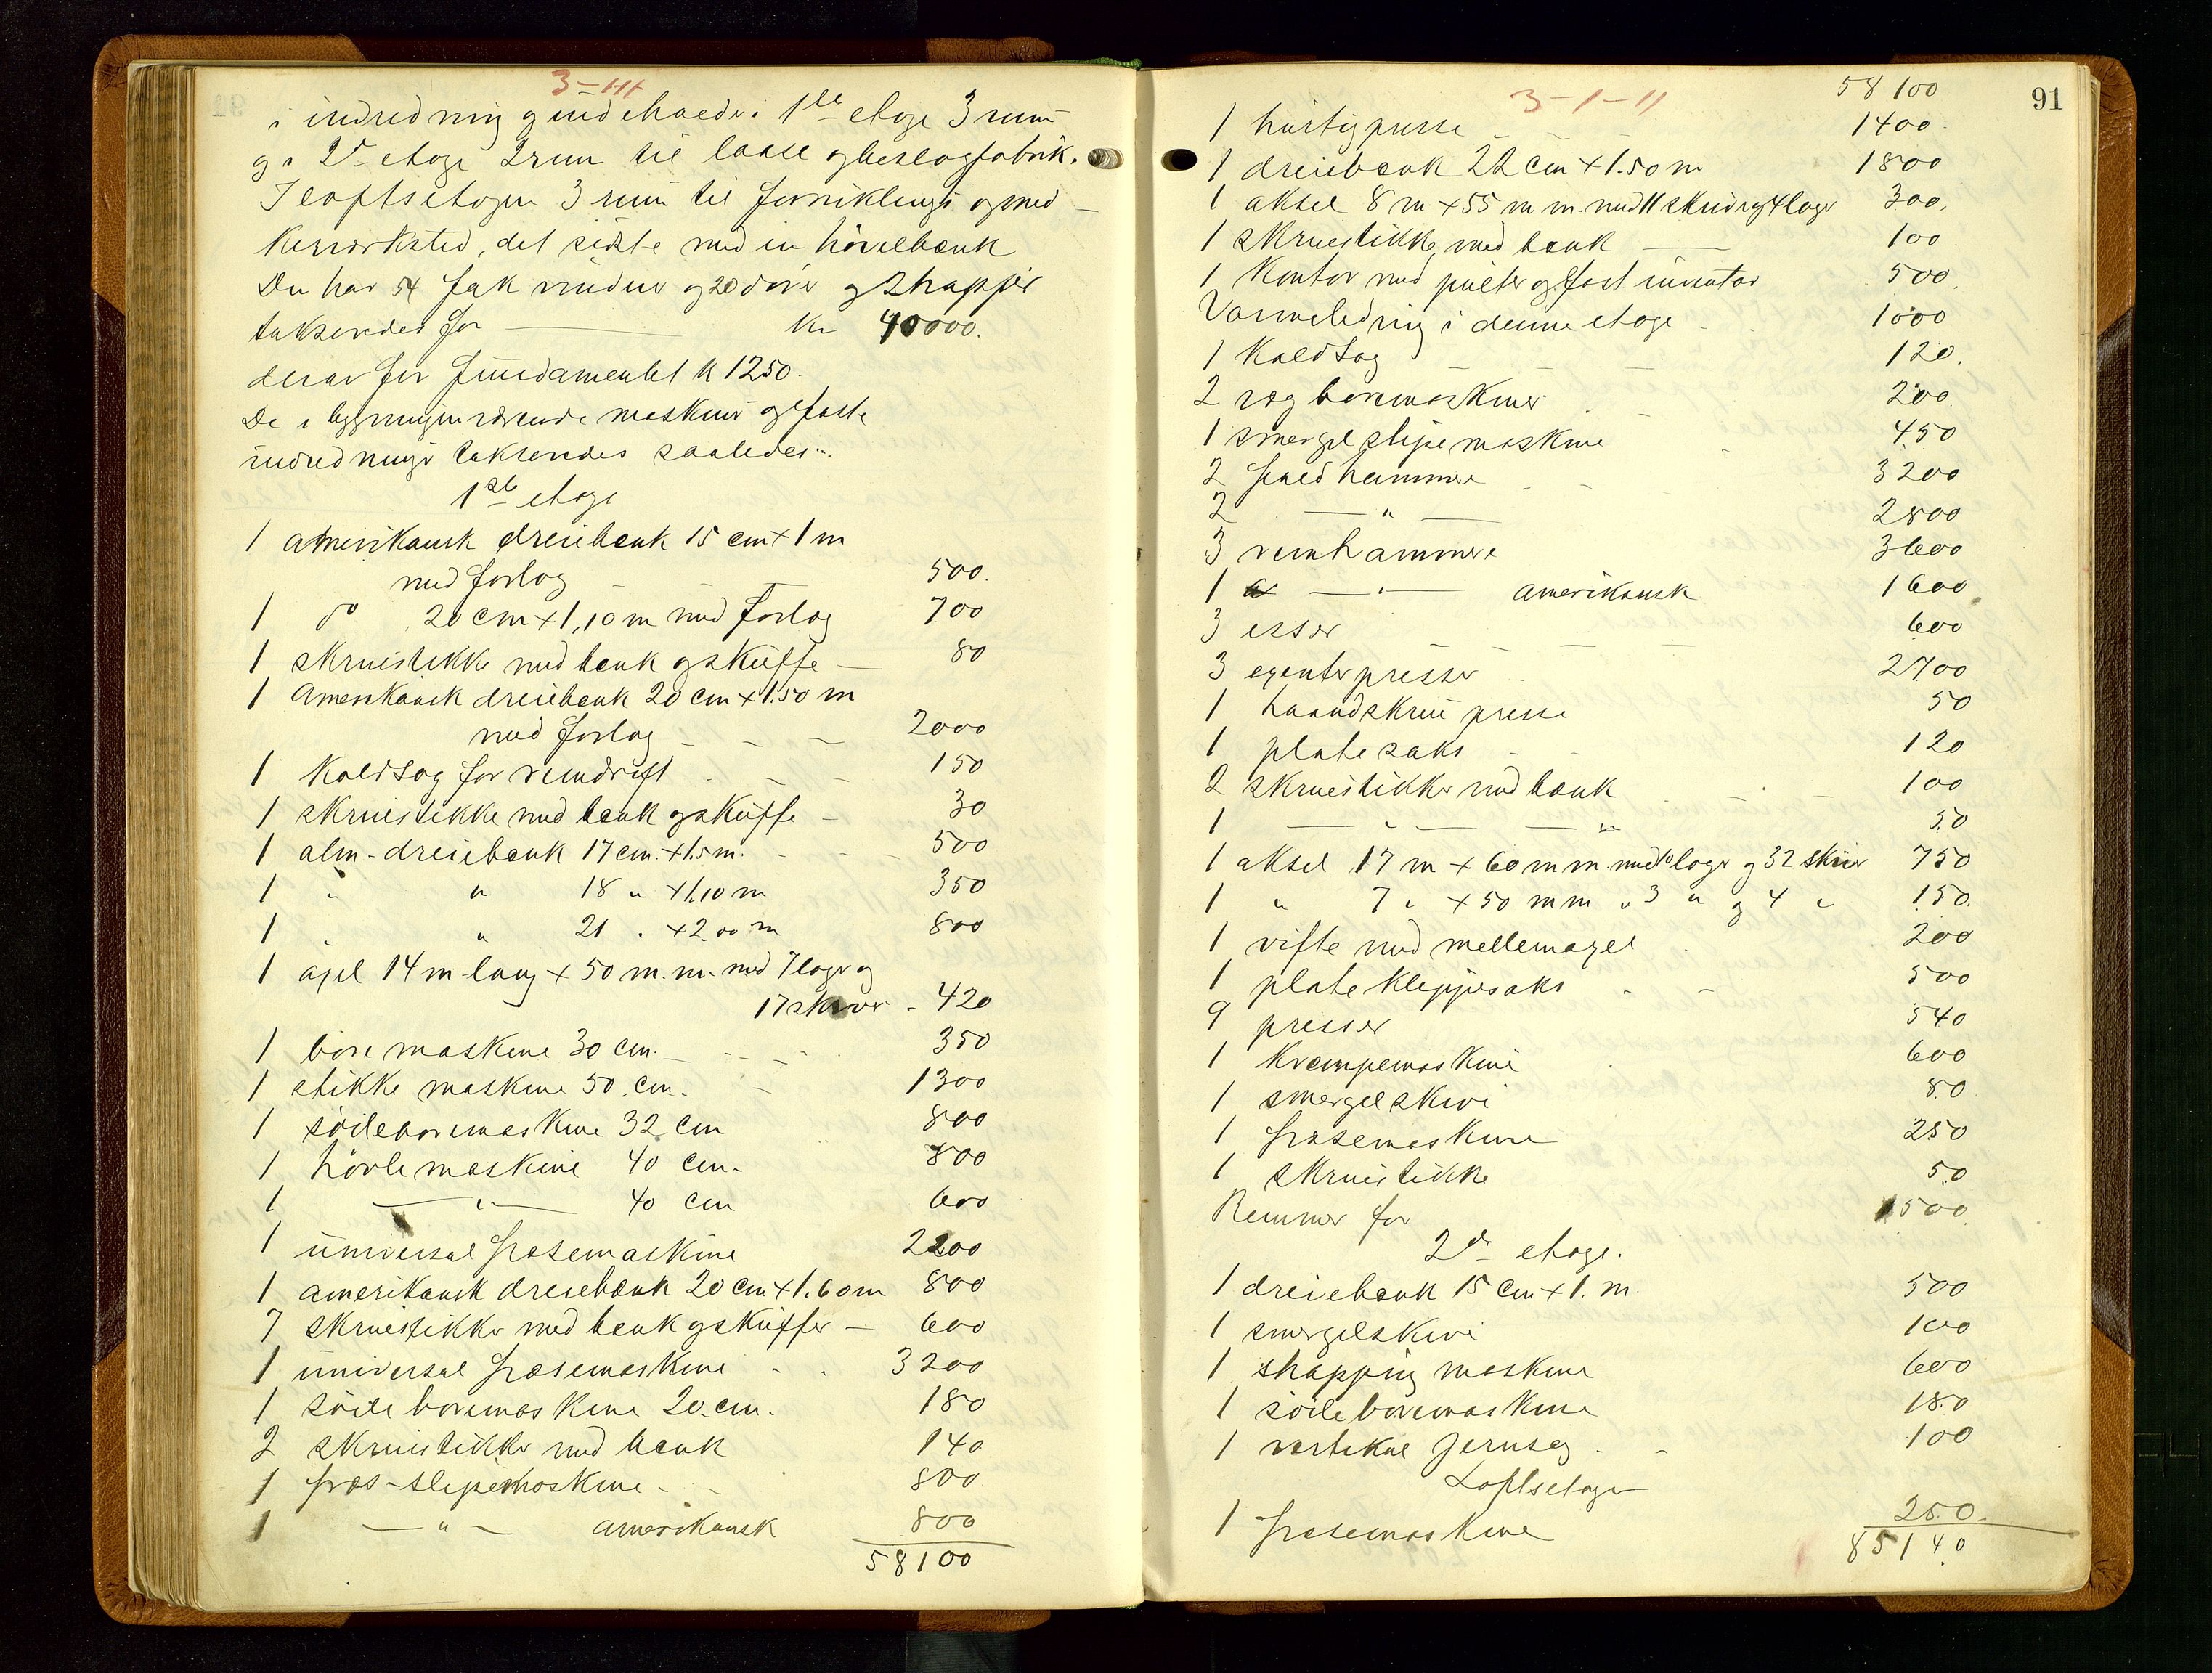 3-III
i indredning og indeholder i 1ste etage 3 rum
og i 2den etage 2 rum til laase og beslagfabrik.
I loftsetagen 3 rum til forniklings og sned-
kerværksted, det sidste med en hövlebænk
Den har 54 fak vinduer og 20 döre og 2 trapper
takseredes for — Kr 40000.
derav for fundamentet k 1250.
De i bygningen værende maskiner og faste
indredninger takseredes saaledes:
1ste etage
1 amerikansk dreiebænk 15 cm x 1 m
med forlag 500.
1 do 20 cm x 1,10 m med forlag 700
1 skruestikke med bænk og skuffe — 80
1 Amerikansk dreiebænk 20 cm x 1.50 m
med forlag - - - 2000
1 Koldsag for remdrift - - - 150
1 skruestikke med bænk og skuffe - 30
1 alm-dreiebænk 17 cm. x 1.5 m. - - - 500
1 " " 18 " x 1.10 m 350
1 " " 21 " x 2.00 m 800
1 axel 14 m lang x 50 m.m. med 7 lager og
17 skiver - 420
1 boremaskine 30 cm. - - - 350
1 stikkemaskine 50 cm. - 1300
1 söileboremaskine 32 cm 800
1 hövlemaskine 40 cm. 800
1 — " — 40 cm 600
1 universal fræsemaskine 2200
1 amerikansk dreiebænk 20 cm x 1.60 m 800
7 skruestikker med bænk og skuffer — 600
1 universal fræsemaskine - - 3200
1 söileboremaskine 20 cm. 180
2 skruestikker med bænk 140
1 fræs-slipemaskine - - 800
1 — " — amerikansk 800
58100
91
3-1-11
58100
1 hurtigpresse - - - 1400.
1 dreiebænk 22 cm x 1.50 m 1800
1 aksel 8 m x 55 m m. med 11 skiver og 4 lager 300.
1 skruestikke med bænk — 100
1 Kontor med pulter og fast inventar 500.
Varmeledning i denne etage - 1000
1 Koldsag - - - 120.
2 vægboremaskiner 200
1 smergelslipemaskine - 450
2 faldhammere - - - 3200
2 — " — 2800
3 remhammere 3600
1 — " — amerikansk 1600
3 esser - - - 600
3 exenterpresser - 2700
1 haandskrue presse 50
1 platesaks - - 120
2 skruestikker med bænk - - - 100
1 — " — — " 50
1 aksel 17 m x 60 m m. med 10 lager og 32 skiver 750
1 " 7 " x 50 m m " 3 " og 4 " 150.
1 vifte med mellemaxel - 200
1 plateklippesaks - - 500
9 presser 540
1 Krempemaskine 600
1 smergelskive 80
1 fræsemaskine 250
1 skruestikke 50
Remmer for 1500.
2den etage.
1 dreiebænk 15 cm x 1. m. 500
1 smergelskive 100
1 shapping maskine 600
1 söileboremaskine 180
1 vertikal jernsag - - 100
Loftsetagen
1 fræsemaskine 250.
85140